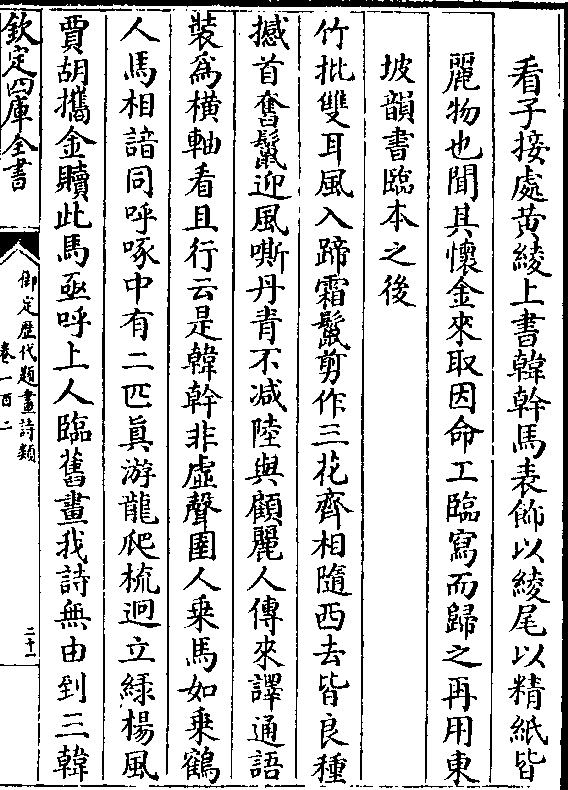 看子接處黄綾上書韓幹馬表飾以綾尾以精紙皆
麗物也聞其懷金來取因命工臨寫而歸之再用東
坡韻書臨本之後
竹批雙耳風入蹄霜鬛剪作三花齊相隨西去皆良種
撼首奮鬛迎風嘶丹青不减陸與顧麗人傳來譯通語
裝爲橫軸看且行云是韓幹非虚聲圉人乗馬如乗鶴
人馬相諳同呼啄中有二匹眞游龍爬梳迥立緑楊風
賈胡攜金贖此馬亟呼上人臨舊畫我詩無由到三韓
欽定四庫全書
御定歴代題畫詩類
卷一百二
二十一